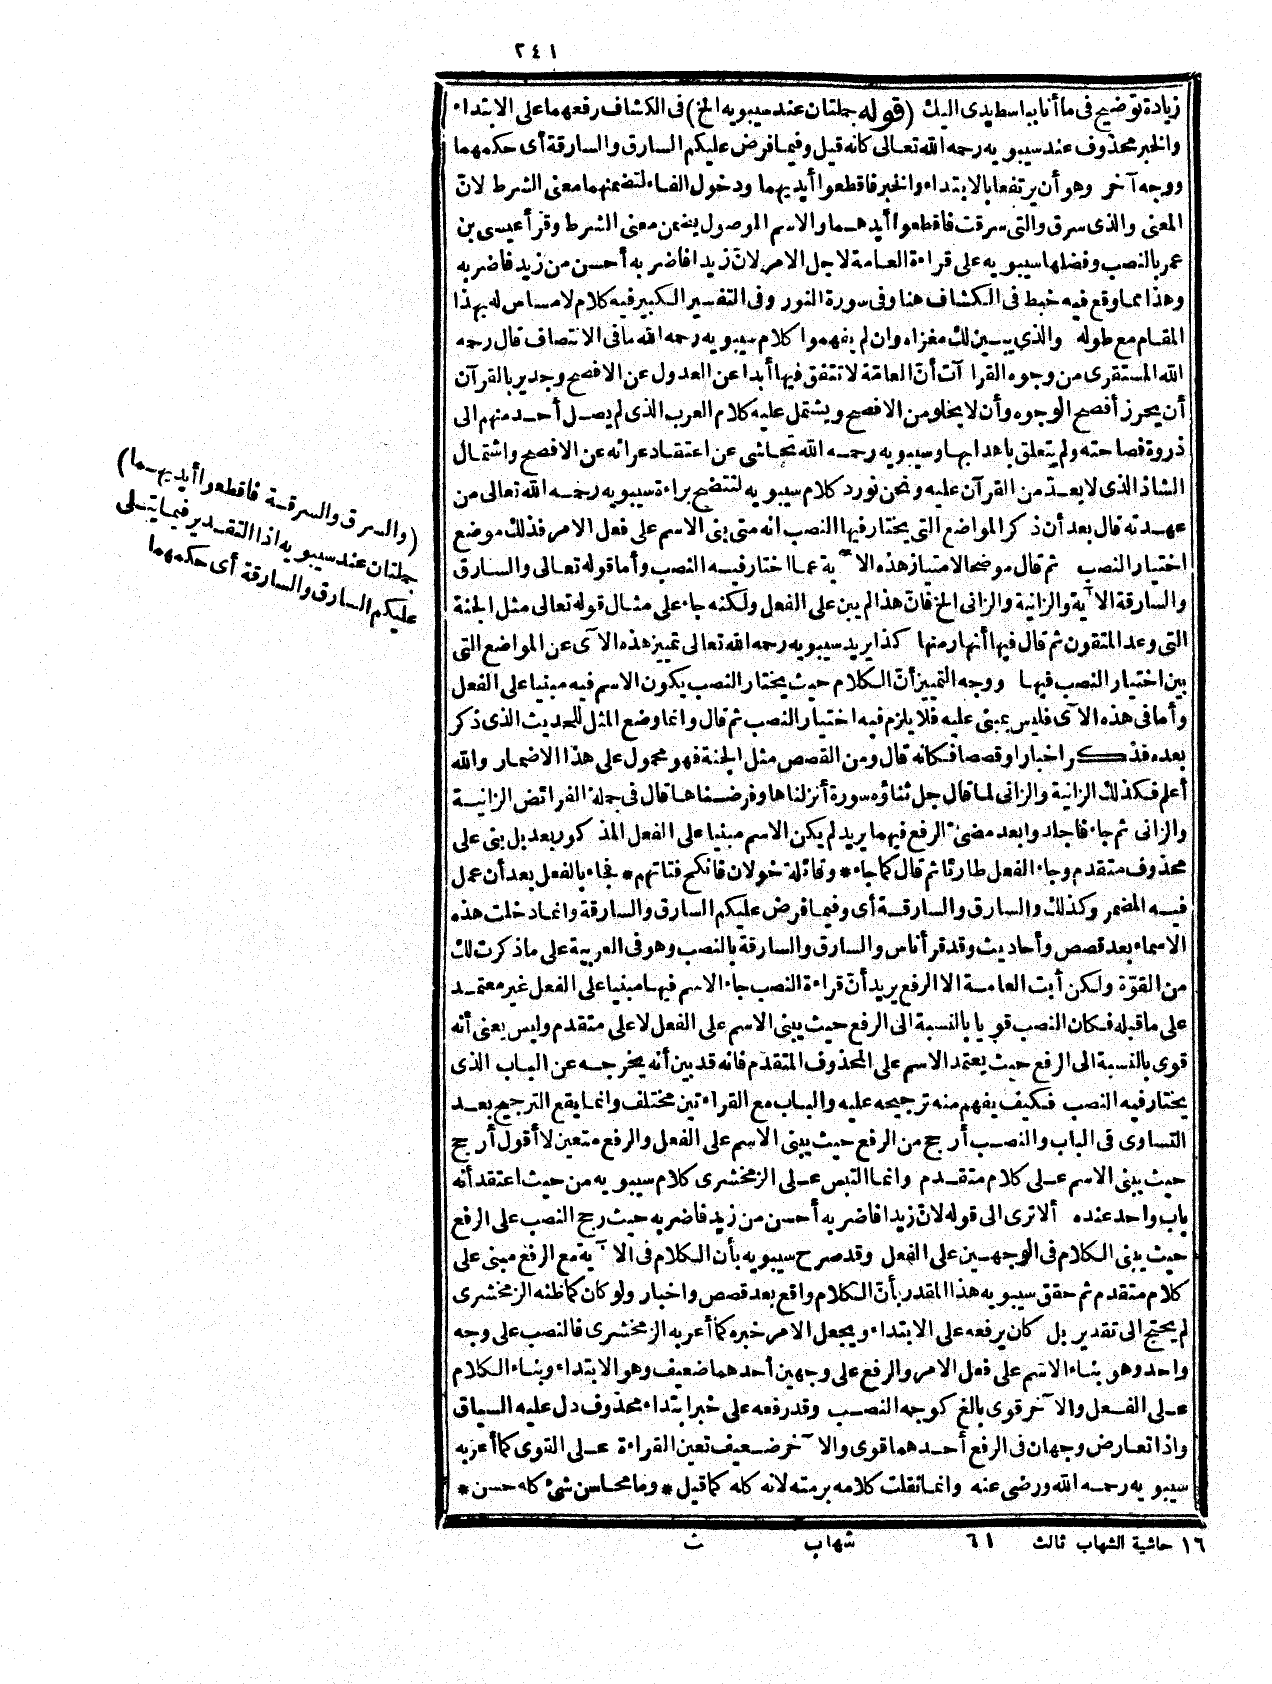 ٢٤١
زيادة توضيح في ما أنا بباسط يدي اليك (قوله جملتان عند سيبويه الخ) في الكشاف رفعهما على الابتداء
والخبر محذوف عند سيبويه رحمه الله تعالى كانه قيل وفيما فرض عليكم السارق والسارقة أى حكمهما
ووجه آخر وهو أن يرتفعا بالابتداء والخبر فاقطعوا أيديهما ودخول الفاء لتضمنهما معنى الشرط لانّ
المعنى والذى سرق والتى سرقت فاقطعوا أيديهما والاسم الموصول يضمن معنى الشرط وقرأ عيسى بن
عمر بالنصب وفضلها سيبويه على قراءة العامة لاجل الامر لانّ زيدا فاضربه أحسن من زيد فاضربه
وهذا مما وقع فيه خبط فى الكشاف هنا وفى سورة النور وفى التفسير الكبير فيه كلام لامساس له بهذا
المقام مع طوله والذي يبين لك مغزاه وان لم يفهموا كلام سيبويه رحمه الله ما فى الانتصاف قال رحمه
الله المستقرى من وجوه القراآت أنّ العامّة لا تتفق فيها أبدا عن العدول عن الافصح وجدير بالقرآن
أن يحرز أفصح الوجوه وأن لا يخلو من الافصح ويشتمل عليه كلام العرب الذى لم يصل أحد منهم الى
ذروة فصاحته ولم يتعلق باهدابها وسيبويه رحمه الله تحاشى عن اعتقاد عرائه عن الافصح واشتمال
الشاذ الذى لا يعدّ من القرآن عليه ونحن نورد كلام سيبويه لتتضح براءة سيبويه رحمه الله تعالى من
عهدته قال بعد أن ذكر المواضع التى يختار فيها النصب انه متى بنى الاسم على فعل الامر فذلك موضع
اختيار النصب ثم قال موضحا لامتياز هذه الآية عما اختار فيه النصب وأما قوله تعالى والسارق
والسارقة الآية والزانية والزانى الخ فانّ هذا لم يبن على الفعل ولكنه جاء على مثال قوله تعالى مثل الجنة
التى وعد المتقون ثم قال فيها أنهار منها كذا يريد سيبويه رحمه الله تعالى تمييز هذه الآى عن المواضع التى
بين اختيار النصب فيها ووجه التمييز أنّ الكلام حيث يختار النصب يكون الاسم فيه مبنيا على الفعل
وأما فى هذه الآى فليس بمبنى عليه فلا يلزم فيه اختيار النصب ثم قال وانما وضع المثل للحديث الذى ذكر
بعده فذكر اخبارا وقصصا فكانه قال ومن القصص مثل الجنة فهو محمول على هذا الاضمار والله
أعلم فكذلك الزانية والزانى لما قال جل ثناؤه سورة أنزلناها وفرضناها قال فى جملة الفرائض الزانية
والزانى ثم جاء فاجلدوا بعد مضىّ الرفع فيهما يريد لم يكن الاسم مبنيا على الفعل المذكور بعد بل بنى على
محذوف متقدم وجاء الفعل طارئا ثم قال كما جاء * وقائلة خولان فانكح فتاتهم * فجاء بالفعل بعد أن عمل
فيه المضمر وكذلك والسارق والسارقة أى وفيما فرض عليكم السارق والسارقة وانما دخلت هذه
الاسماء بعد قصص وأحاديث وقد قرأ ناس والسارق والسارقة بالنصب وهو فى العربية على ما ذكرت لك
من القوّة ولكن أبت العامة الا الرفع يريد أنّ قراءة النصب جاء الاسم فيها مبنيا على الفعل غير معتمد
على ما قبله فكان النصب قويا بالنسبة الى الرفع حيث يبنى الاسم على الفعل لا على متقدم وليس يعنى أنه
قوى بالنسبة الى الرفع حيث يعتمد الاسم على المحذوف المتقدّم فانه قد بين أنه يخرجه عن الباب الذى
يختار فيه النصب فكيف يفهم منه ترجيحه عليه والباب مع القراءتين مختلف وانما يقع الترجيح بعد
التساوى فى الباب والنصب أرجح من الرفع حيث يبنى الاسم على الفعل والرفع متعين لا أقول أرجح
حيث يبنى الاسم على كلام متقدم وانما التبس على الزمخشرى كلام سيبويه من حيث اعتقد أنه
باب واحد عنده ألا ترى الى قوله لانّ زيدا فاضربه أحسن من زيد فاضربه حيث رجح النصب على الرفع
حيث يبنى الكلام فى الوجهين على الفعل وقد صرح سيبويه بأن الكلام فى الآية مع الرفع مبنى على
كلام متقدم ثم حقق سيبويه هذا المقدر بأنّ الكلام واقع بعد قصص واخبار ولو كان كما ظنه الزمخشرى
لم يحتج الى تقدير بل كان يرفعه على الابتداء ويجعل الامر خبره كما أعربه الزمخشرى فالنصب على وجه
واحد وهو بناء الاسم على فعل الامر والرفع على وجهين أحدهما ضعيف وهو الابتداء وبناء الكلام
على الفعل والآخر قوى بالغ كوجه النصب وقد رفعه على خبر ابتداء محذوف دل عليه السياق
واذا تعارض وجهان فى الرفع أحدهما قوى والآخر ضعيف تعين القراءة على القوى كما أعربه
سيبويه رحمه الله ورضى عنه وانما نقلت كلامه برمته لانه كله كما قيل * وما محاسن شئ كله حسن *
(والسرق والسرقة فاقطعوا أيديهما)
جملتان عند سيبويه اذ التقدير فيما يتلى
عليكم السارق والسارقة أى حكمهما
١٦ حاشية الشهاب ثالث ٦١ شهاب ث